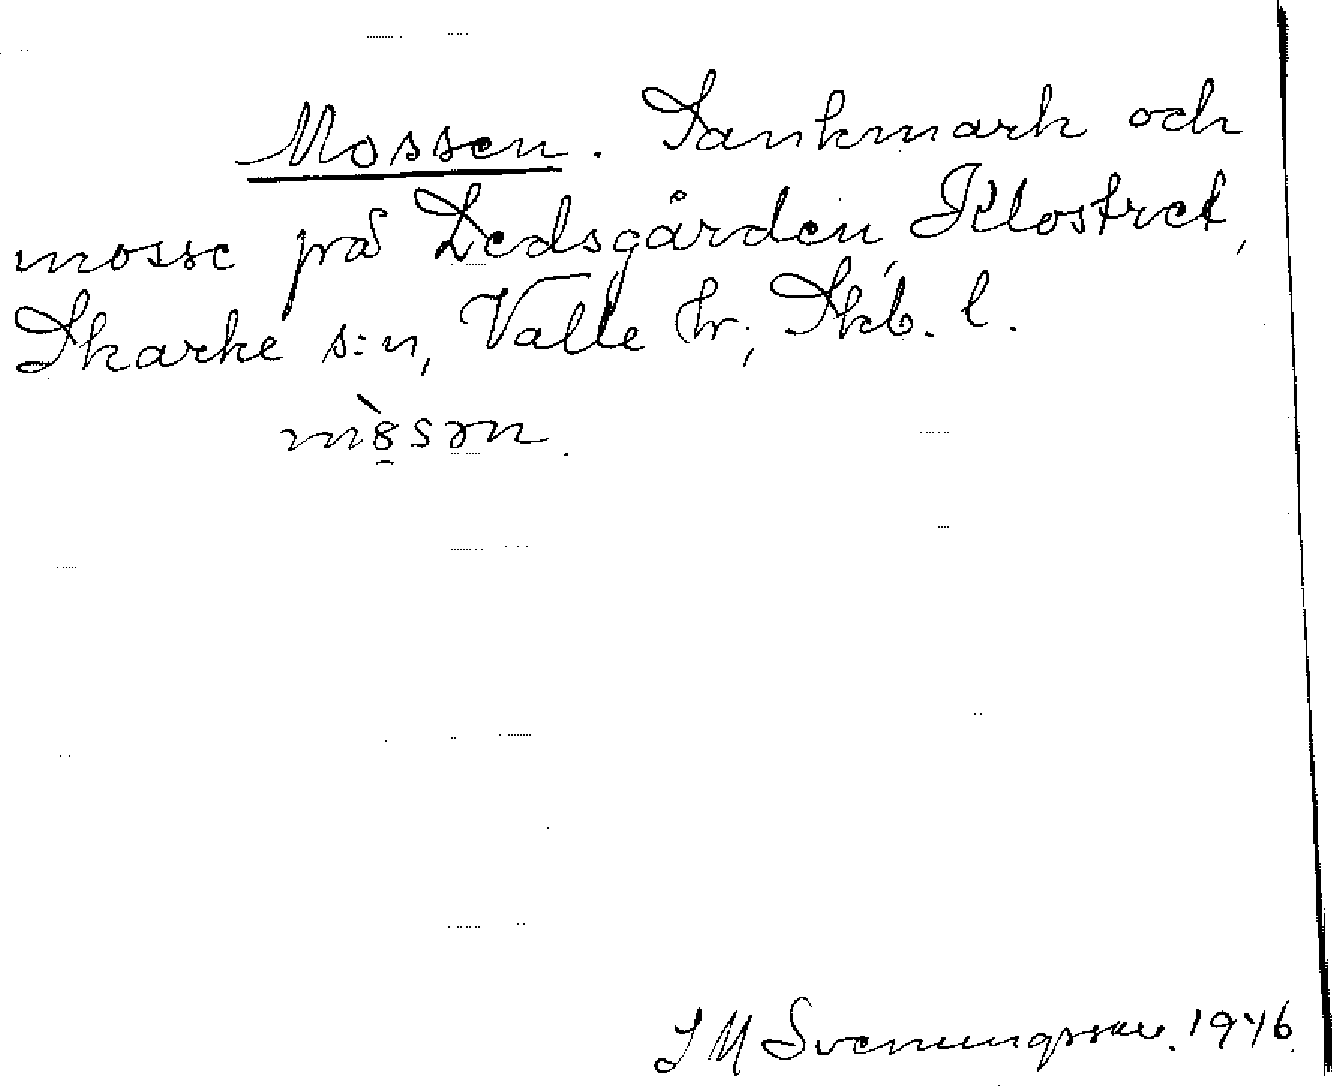 Mossen. Sankmark och
mosse på Dedsgården, Klostret,
Skarke s:n, Valle hr, Skb. l.
S M Svenungsson. 1946.